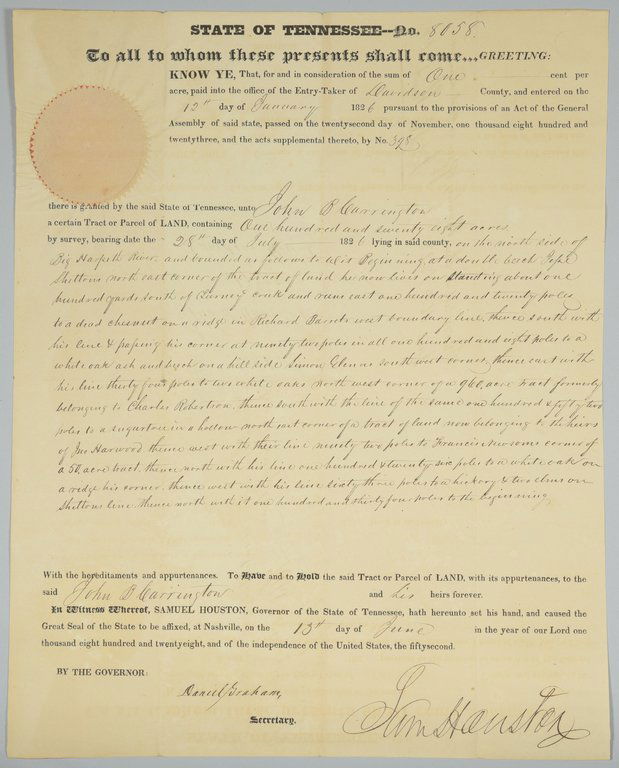 STATE OF TENNESSEE--No. 8058.
To all to whom these presents shall come...GREETING:
KNOW YE, That, for and in consideration of the sum of One cent per
acre, paid into the office of the Entry-Taker of Davidson County, and entered on the
12th day of January 1826 pursuant to the provisions of an Act of the General
Assembly of said state, passed on the twentysecond day of November, one thousand eight hundred and
twentythree, and the acts supplemental thereto, by No. 398
there is granted by the said State of Tennessee, unto John B Carrington
a certain Tract or Parcel of LAND, containing One hundred and twenty eight acres
by survey, bearing date the 28th day of July 1826 lying in said county, on the north side of
Big Harpeth River and bounded as follows to wit Beginning at a double beech
Sheltons north east corner of the tract of land he now lives on standing about one
hundred yards south of creek and runs east one hundred and twenty poles
to a dead chesnut on a ridge in Richard west boundary line, thence south with
his line & passing his corner at ninety two poles in all one hundred and eight poles to a
white oak ash and beech on a hill side Simon south west corner, thence east with
his line thirty four poles to two white oaks north west corner of a 960, acre tract formerly
belonging to Charles Robertson, thence south with the line of the same one hundred & fifty two
poles to a sugartree in a hollow north east corner of a tract of land now belonging to the heirs
of Harwood thence west with their line ninety two poles to Francis Newsoms corner of
a 50, acre tract, thence north with his line one hundred & twenty six poles to a white oak on
a ridge his corner, thence west with his line sixty three poles to a hickory & two elms on
Sheltons line thence north with it one hundred and thirty four poles to the beginning
With the hereditaments and appurtenances. To Have and to Hold the said Tract or Parcel of LAND, with its appurtenances, to the
said John B Carrington and his heirs forever.
In Witness Whereof, SAMUEL HOUSTON, Governor of the State of Tennessee, hath hereunto set his hand, and caused the
Great Seal of the State to be affixed, at Nashville, on the 13th day of June in the year of our Lord one
thousand eight hundred and twentyeight, and of the independence of the United States, the fiftysecond.
BY THE GOVERNOR:
Daniel Graham,
Secretary.
Sam Houston